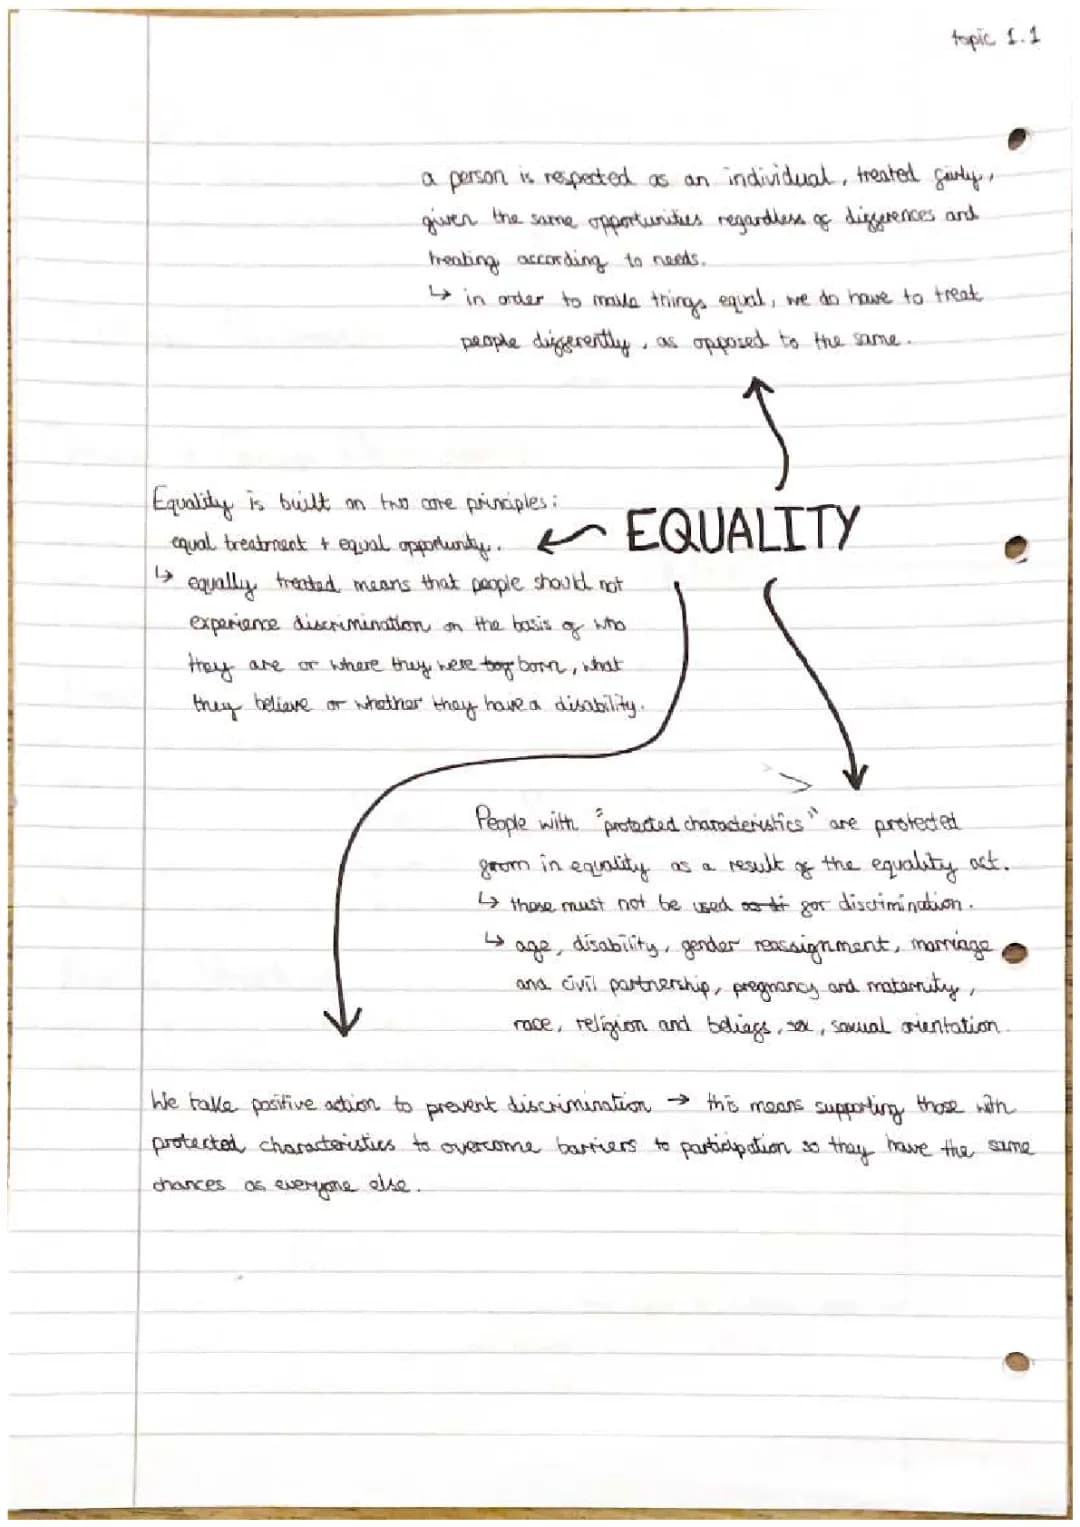 topic 1.1
a person is respected as an individual, treated fairly,
given the same opportunities regardless of differences and
treating according to needs.
↳ in order to make things equal, we do have to treat
people differently, as opposed to the same.
Equality is built on two core principles:
equal treatment + equal opportunity.
EQUALITY
↳ equally treated means that people should not
experience discrimination on the basis of who
they are or where they were born, what
they believe or whether they have a disability.
People with "protected characteristics" are protected
from in equality as a result of the equality act.
↳ these must not be used for discrimination.
↳ age, disability, gender reassignment, marriage
and civil partnership, pregnancy and maternity,
race, religion and beliefs, sex, sexual orientation.
We take positive action to prevent discrimination → this means supporting those with
protected characteristics to overcome barriers to participation so they have the same
chances as everyone else.